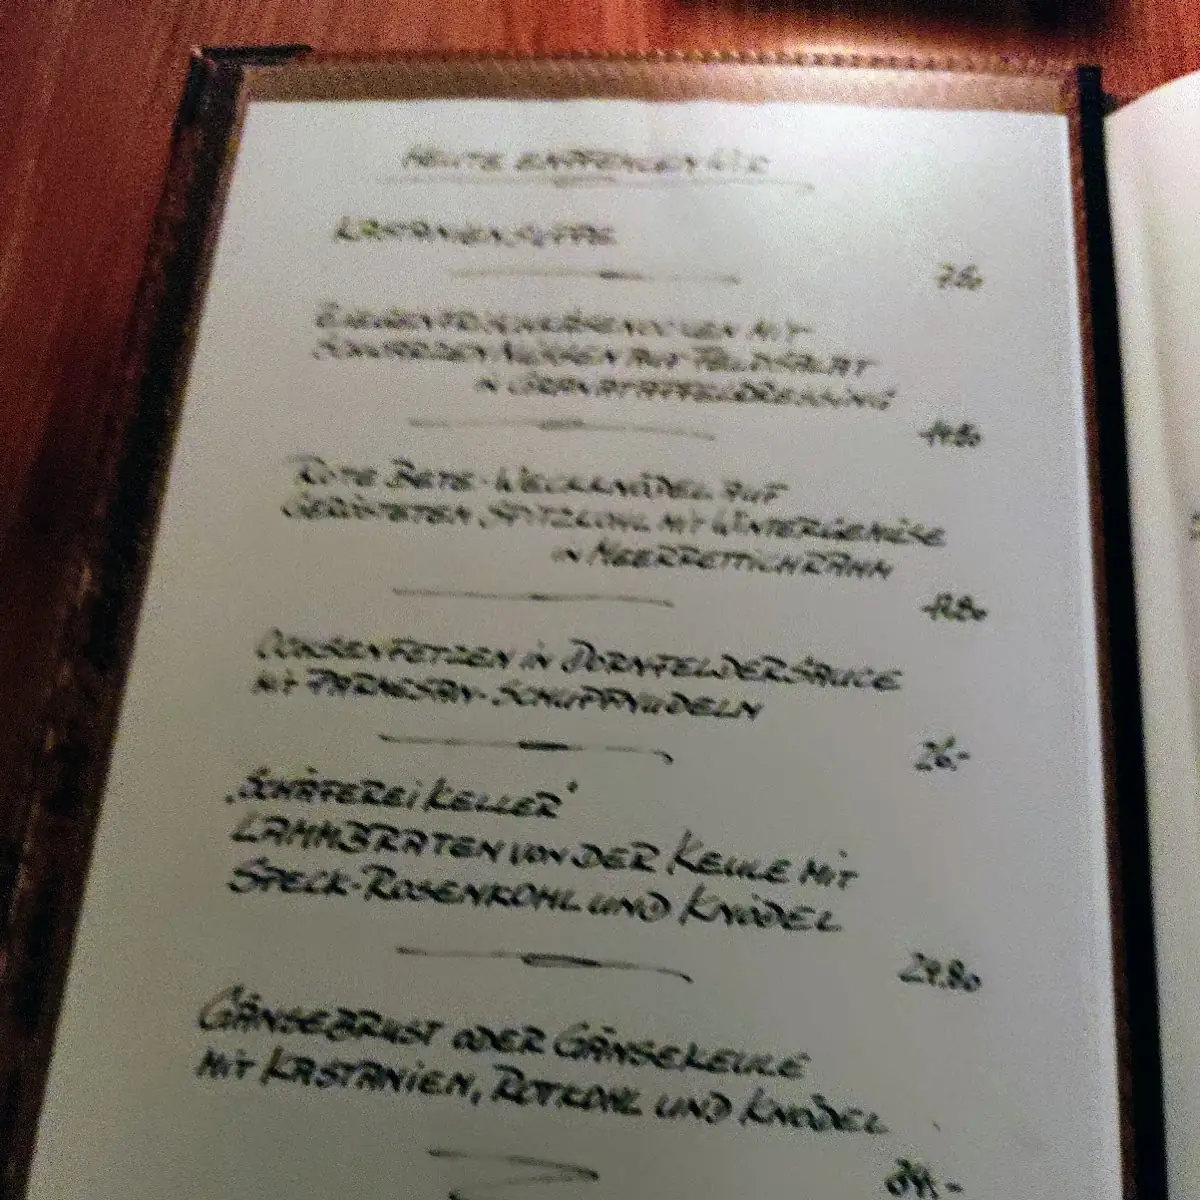 HEUTE EMPFEHLEN WIR
KASTANIENSUPPE
7.50
ZIEGENFRISCHKÄSENOCKEN MIT
SCHWARZEN NÜSSEN AUF FELDSALAT
IN GRANATAPFELDRESSING
14.80
ROTE BETE-WECKKNÖDEL AUF
GERÖSTETEN SPITZKOHL MIT WINTERGEMÜSE
IN MEERRETTICHRAHM
OCHSENFETZEN IN DORNFELDERSAUCE
MIT PARMESAN-SCHUPFNUDELN
26.-
"SCHÄFEREI KELLER"
LAMMBRATEN VON DER KEULE MIT
SPECK-ROSENKOHL UND KNÖDEL
GÄNSEBRUST ODER GÄNSEKEULE
MIT KASTANIEN, ROTKOHL UND KNÖDEL